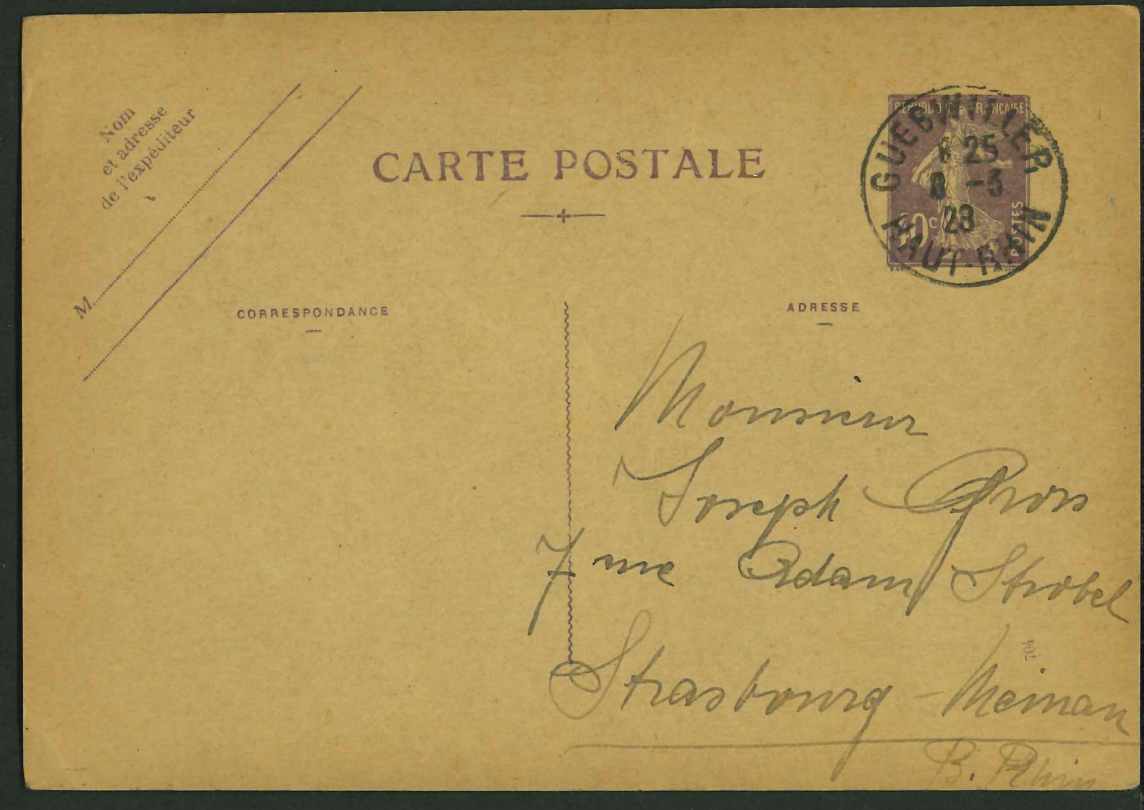 Nom
et adresse
de l'expéditeur
M
CARTE POSTALE
RÉPUBLIQUE FRANÇAISE
POSTES
GUEBWILLER
25
8 -3
28
HAUT-RHIN
CORRESPONDANCE
ADRESSE
Monsieur
Joseph Gross
7 rue Adam Strobel
Strasbourg-Meinau
B. Rhin